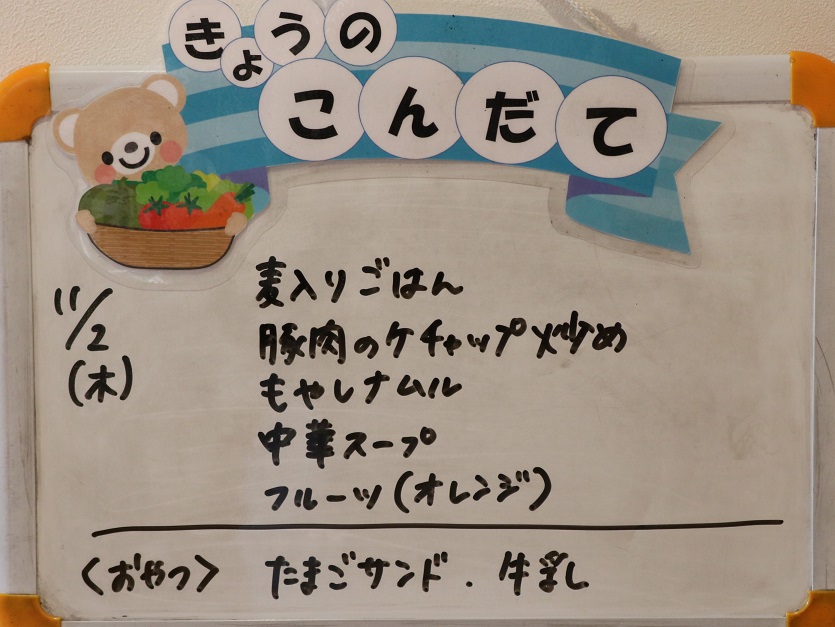 きょうの
こんだて
11/2
(木)
麦入りごはん
豚肉のケチャップ炒め
もやしナムル
中華スープ
フルーツ(オレンジ)
〈おやつ〉 たまごサンド.牛乳